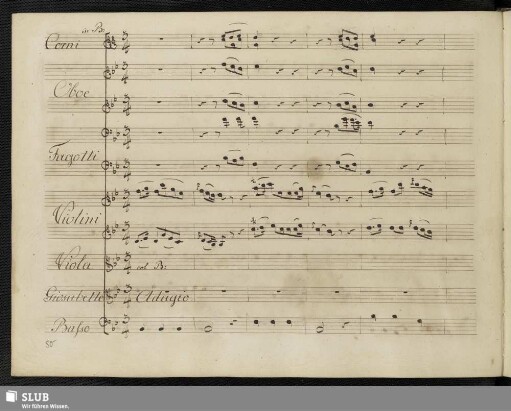 in B.
Corni
Oboe
Fagotti
Violini
Viola
col B.
Giosabette
Adagio
Basso
SLUB
Wir führen Wissen.